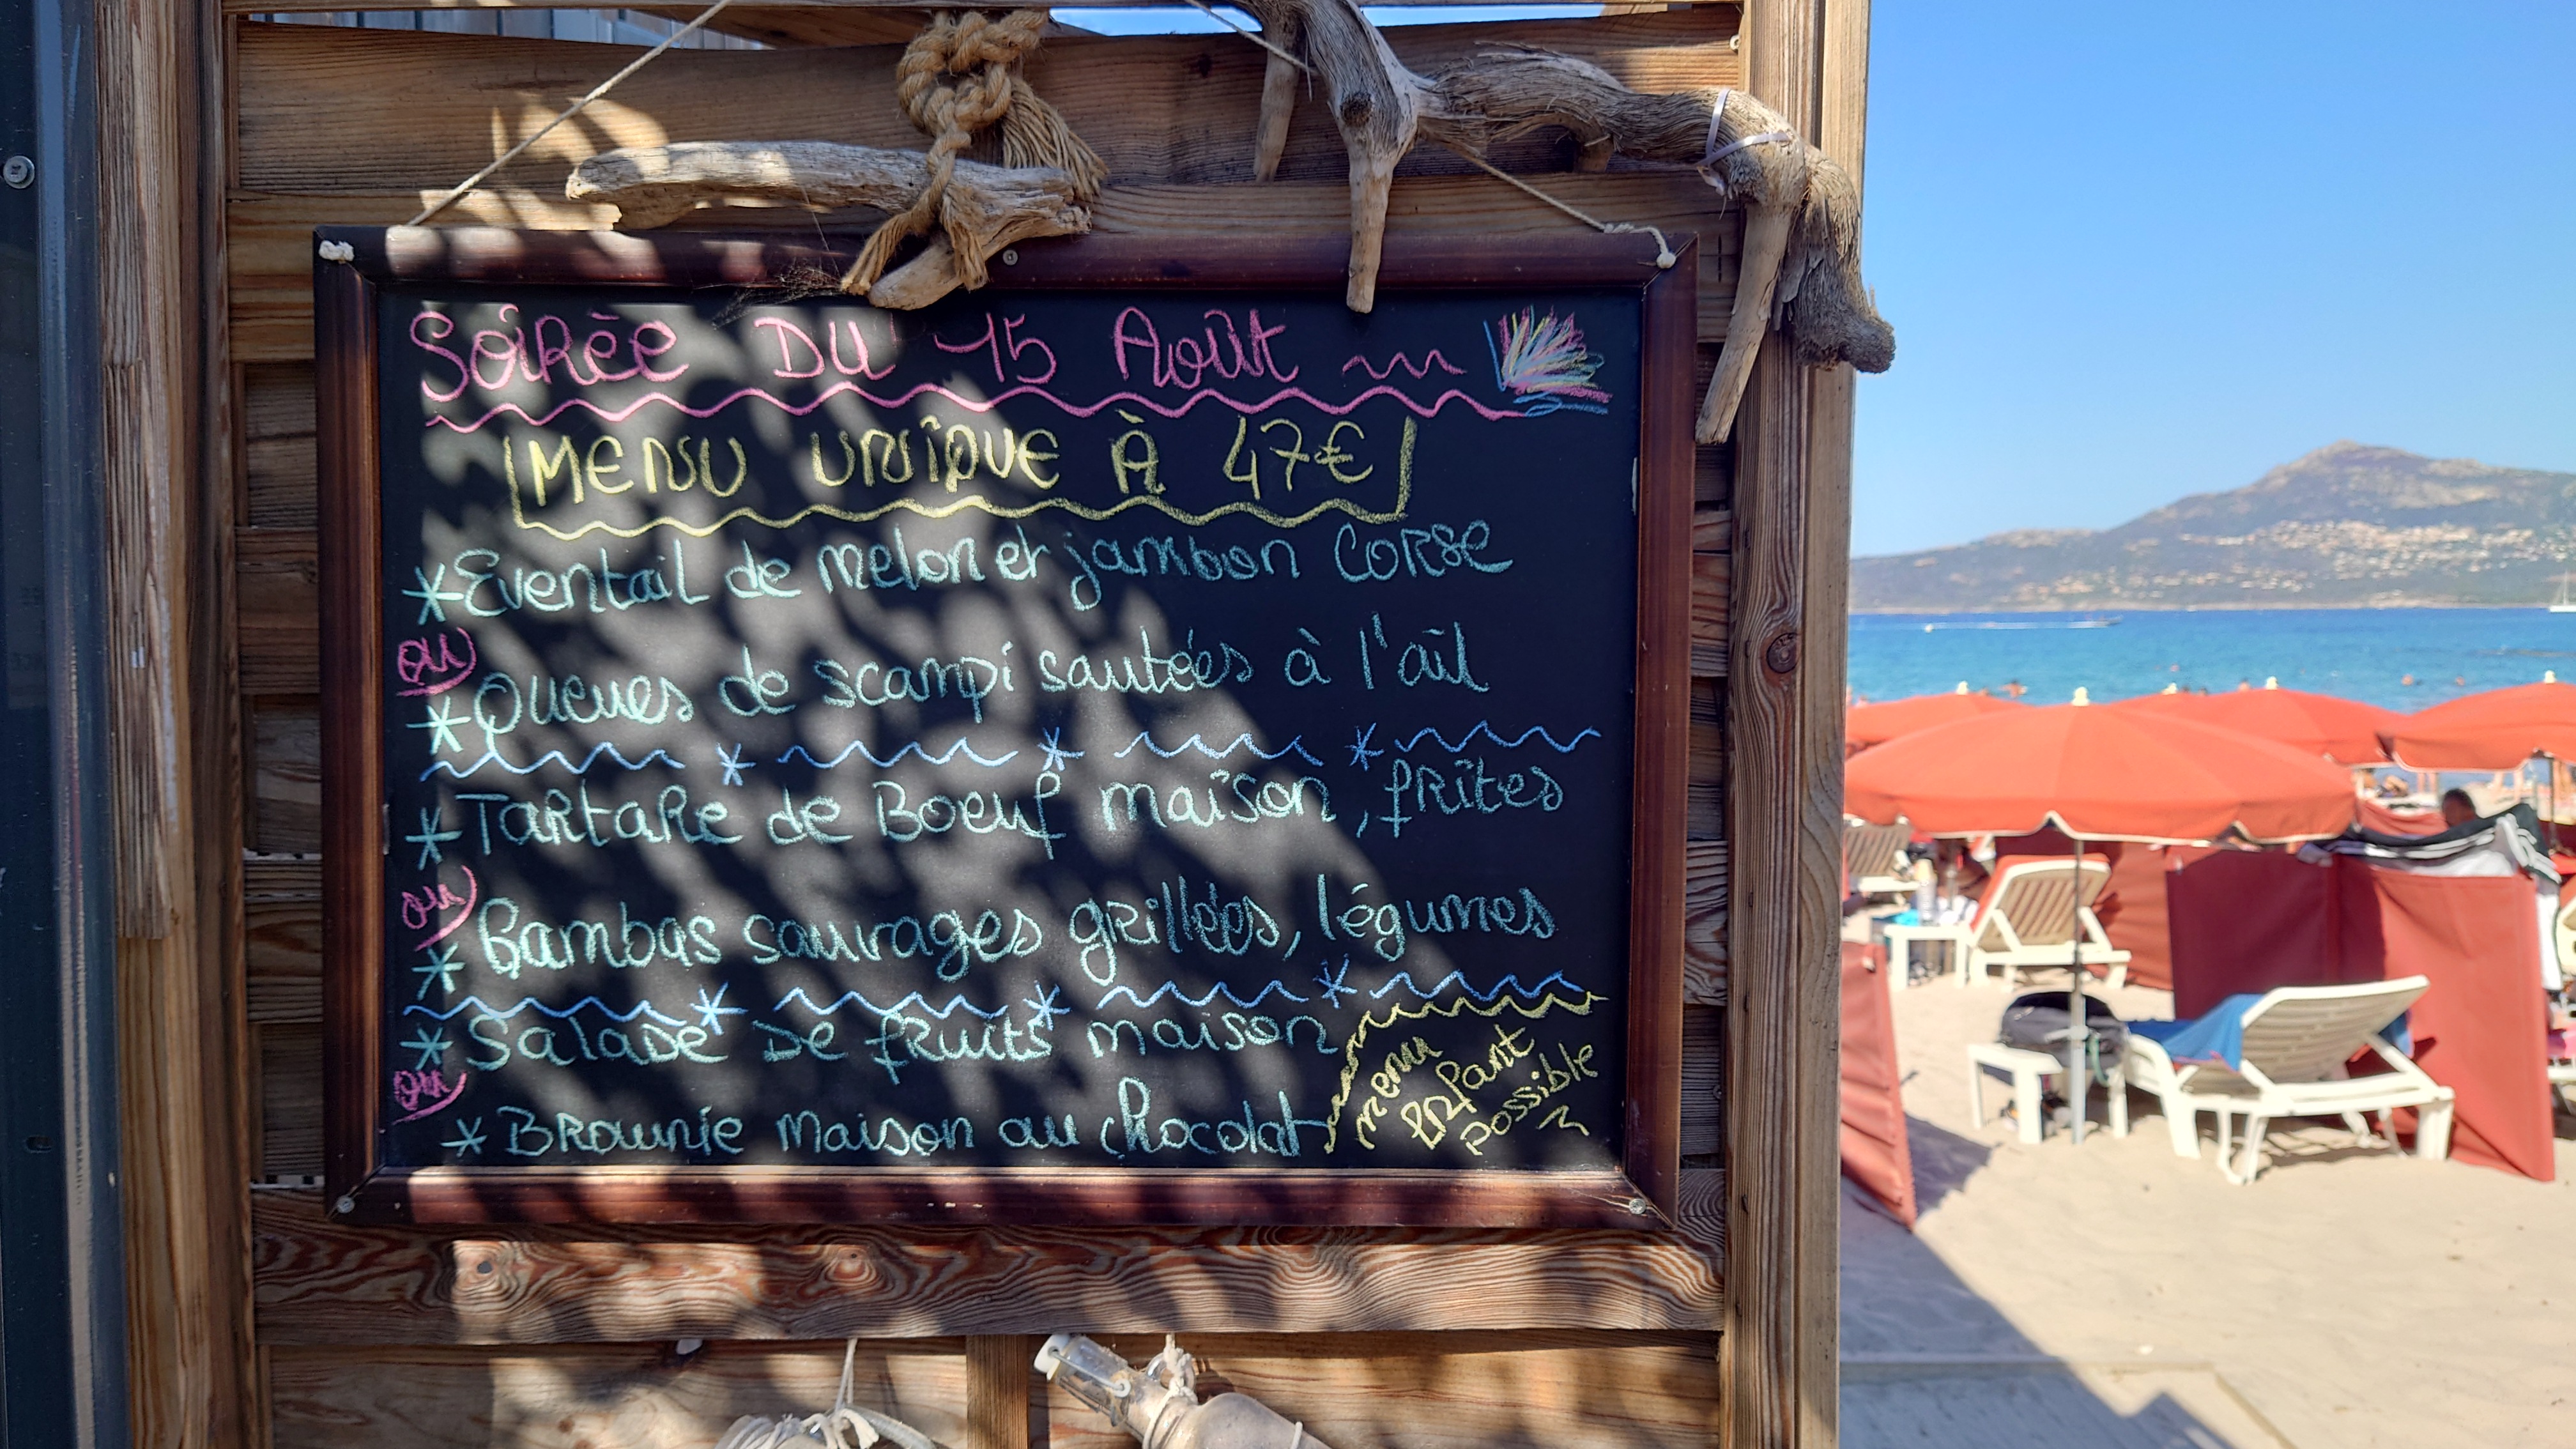 Soirèe DU 15 Août
MENU UNIQUE À 47€
*Eventail de melon et jambon CORSE
ou
*Queues de scampi sautées à l'ail
*Tartare de Boeuf maison, frites
ou
*Gambas sauvages grillées, légumes
*Salade de fruits maison
ou
*Brownie maison au chocolat
menu
enfant
possible